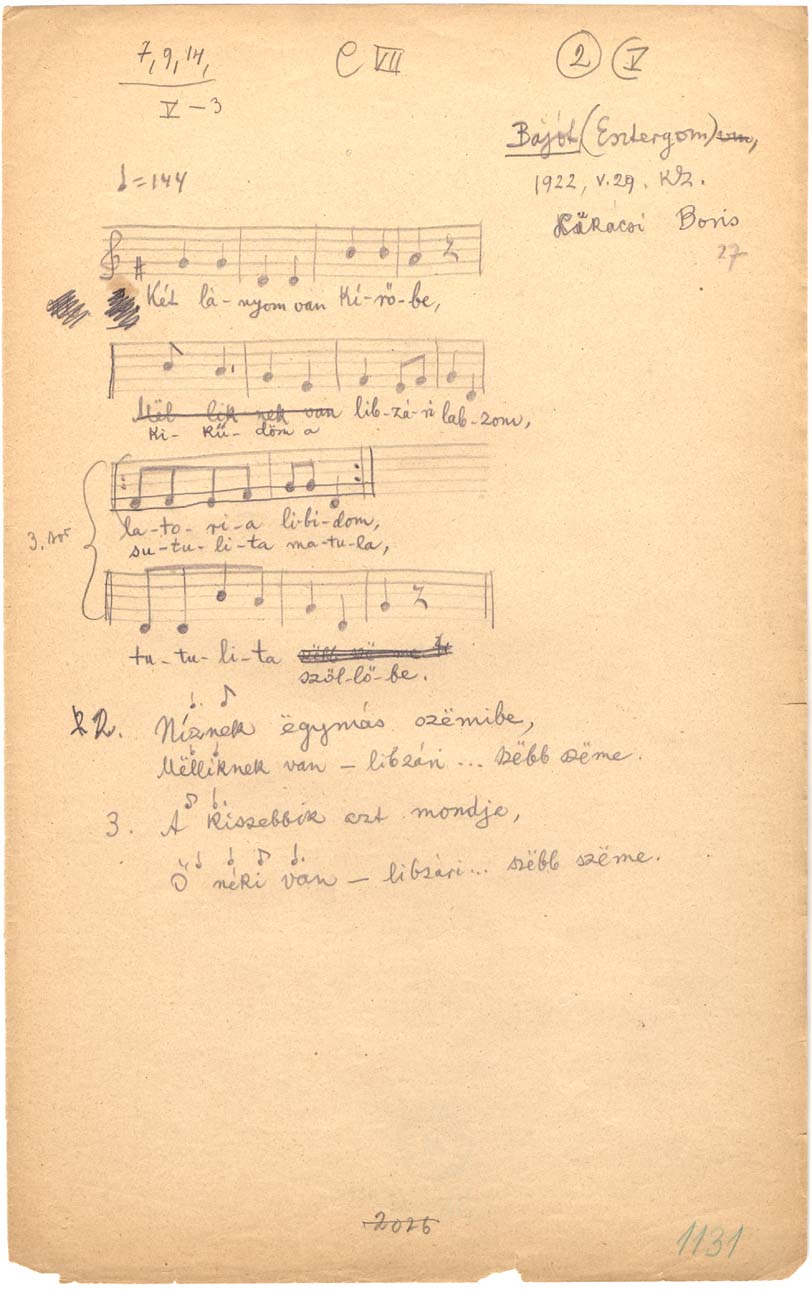 7, 9, 14,
V – 3
C VII
2 V
Bajót (Esztergom) vm,
1922, V. 29. KZ.
Boris
27
♩=144
Két lá-nyom van Ki-rő-be,
Mël-lik-nek van lib-zá-ri lab-zom,
Ki-kű-döm a
3. sor
la-to-ri-a li-bi-dom,
su-tu-li-ta ma-tu-la,
tu-tu-li-ta szëbb szë-me
szől-lő-be.
2. Níznek ëgymás szëmibe,
Mëlliknek van – libzári ... szëbb szëme.
3. A kiszebbik azt mondje,
Ő néki van – libzári ... szëbb szëme.
2026
1131